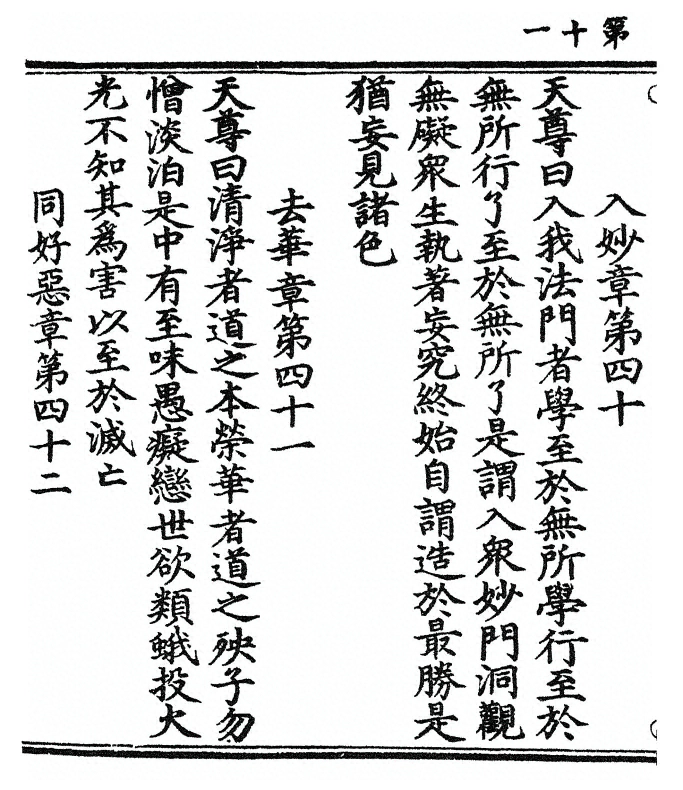 第十一
入妙章第四十
天尊曰入我法門者學至於無所學行至於
無所行了至於無所了是謂入衆妙門洞觀
無礙衆生執著妄究終始自謂造於最勝是
猶妄見諸色
去華章第四十一
天尊曰清淨者道之本榮華者道之殃子勿
憎淡泊是中有至味愚癡戀世欲類蛾投火
光不知其爲害以至於滅亡
同好惡章第四十二